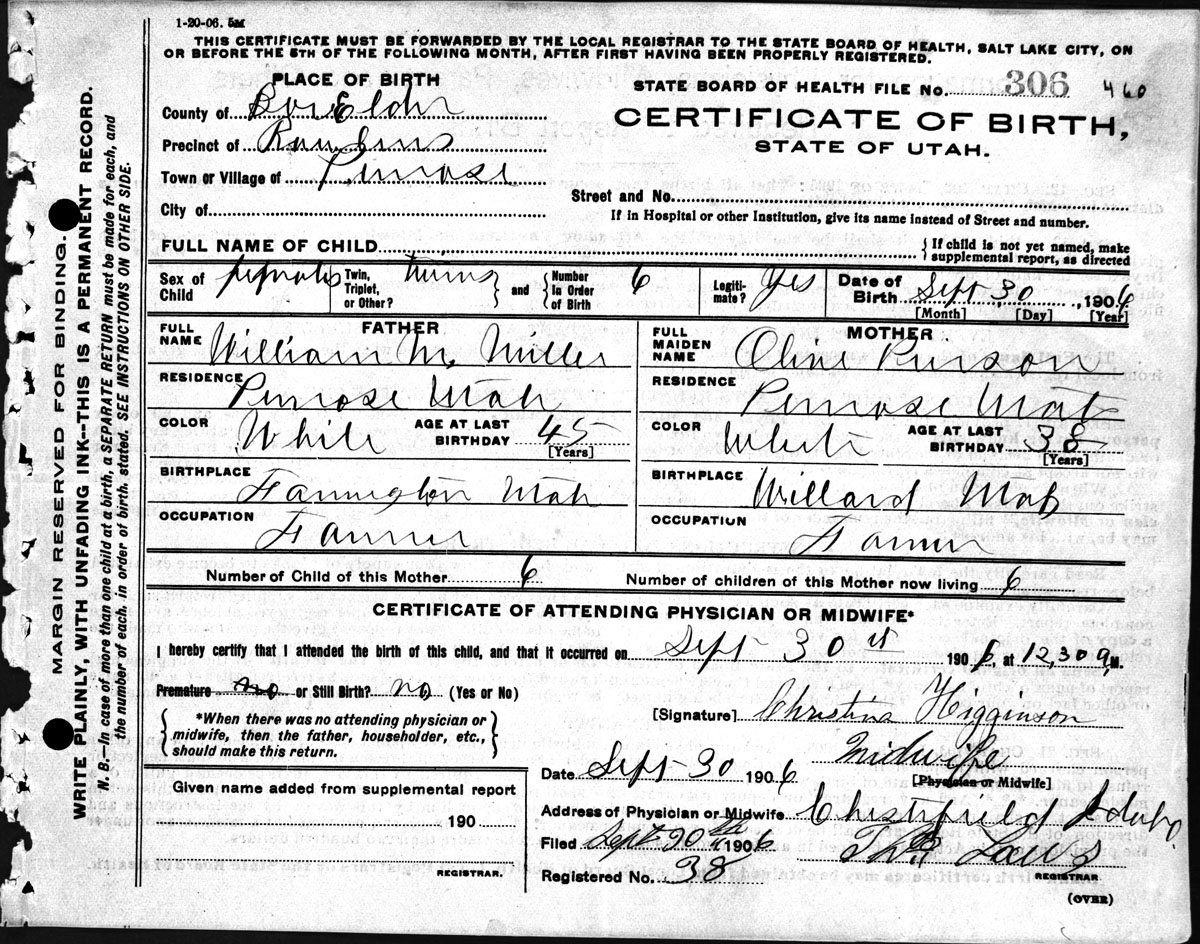 1-20-06. 5M
THIS CERTIFICATE MUST BE FORWARDED BY THE LOCAL REGISTRAR TO THE STATE BOARD OF HEALTH, SALT LAKE CITY, ON
OR BEFORE THE 5TH OF THE FOLLOWING MONTH, AFTER FIRST HAVING BEEN PROPERLY REGISTERED.
PLACE OF BIRTH
STATE BOARD OF HEALTH FILE No. 306 460
County of Box Elder
CERTIFICATE OF BIRTH,
STATE OF UTAH.
Precinct of
Town or Village of Penrose
Street and No.
City of
If in Hospital or other Institution, give its name instead of Street and number.
FULL NAME OF CHILD
{ If child is not yet named, make
supplemental report, as directed
Sex of Child females Twin, Triplet, or Other? twins } and { Number in Order of Birth 6 Legiti-mate? Yes Date of Birth Sept 30, 1906
[Month] [Day] [Year]
FATHER
FULL NAME William M. Miller
MOTHER
FULL MAIDEN NAME Olive
RESIDENCE Penrose Utah
RESIDENCE Penrose Utah
COLOR White AGE AT LAST BIRTHDAY 45 [Years]
COLOR White AGE AT LAST BIRTHDAY 38 [Years]
BIRTHPLACE Farmington Utah
BIRTHPLACE Willard Utah
OCCUPATION Farmer
OCCUPATION Farmer
Number of Child of this Mother 6 Number of children of this Mother now living 6
CERTIFICATE OF ATTENDING PHYSICIAN OR MIDWIFE*
I hereby certify that I attended the birth of this child, and that it occurred on Sept 30 1906, at 12,30 a, M.
Premature no or Still Birth? no (Yes or No)
{ *When there was no attending physician or
midwife, then the father, householder, etc.,
should make this return. }
[Signature] Christina Higginson
Midwife
[Physician or Midwife]
Date Sept 30 1906
Given name added from supplemental report
190
REGISTRAR.
Address of Physician or Midwife Chesterfield Idaho
Filed Sept 30th 1906 Laws
REGISTRAR
Registered No. 38
(OVER)
MARGIN RESERVED FOR BINDING.
WRITE PLAINLY, WITH UNFADING INK--THIS IS A PERMANENT RECORD.
N. B.—In case of more than one child at a birth, a SEPARATE RETURN must be made for each, and
the number of each, in order of birth, stated. SEE INSTRUCTIONS ON OTHER SIDE.